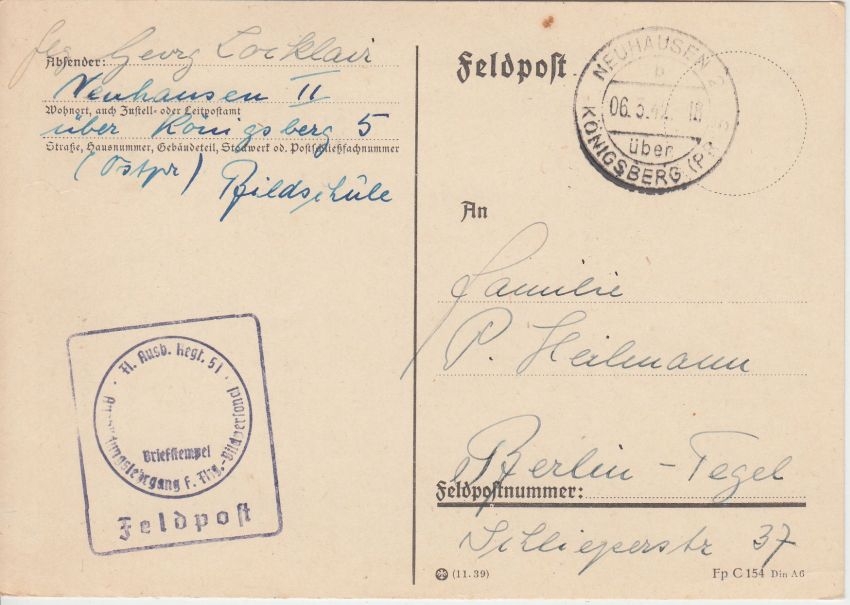 Absender: Georg Locklair
Neuhausen II
Wohnort, auch Zustell- oder Leitpostamt
über Königsberg 5
Straße, Hausnummer, Gebäudeteil, Stockwerk od. Postschließfachnummer
(Ostpr) Bildschule
Fl. Ausb. Regt. 51
Ausbildungslehrgang f. Flg.-Bildpersonel
Briefstempel
Feldpost
Feldpost
NEUHAUSEN 2
b
06.3.41
über
KÖNIGSBERG (PR)
An
Familie
P. Heilmann
Berlin-Tegel
Feldpostnummer:
Schlieperstr 37
(11.39)
Fp C 154 Din A6